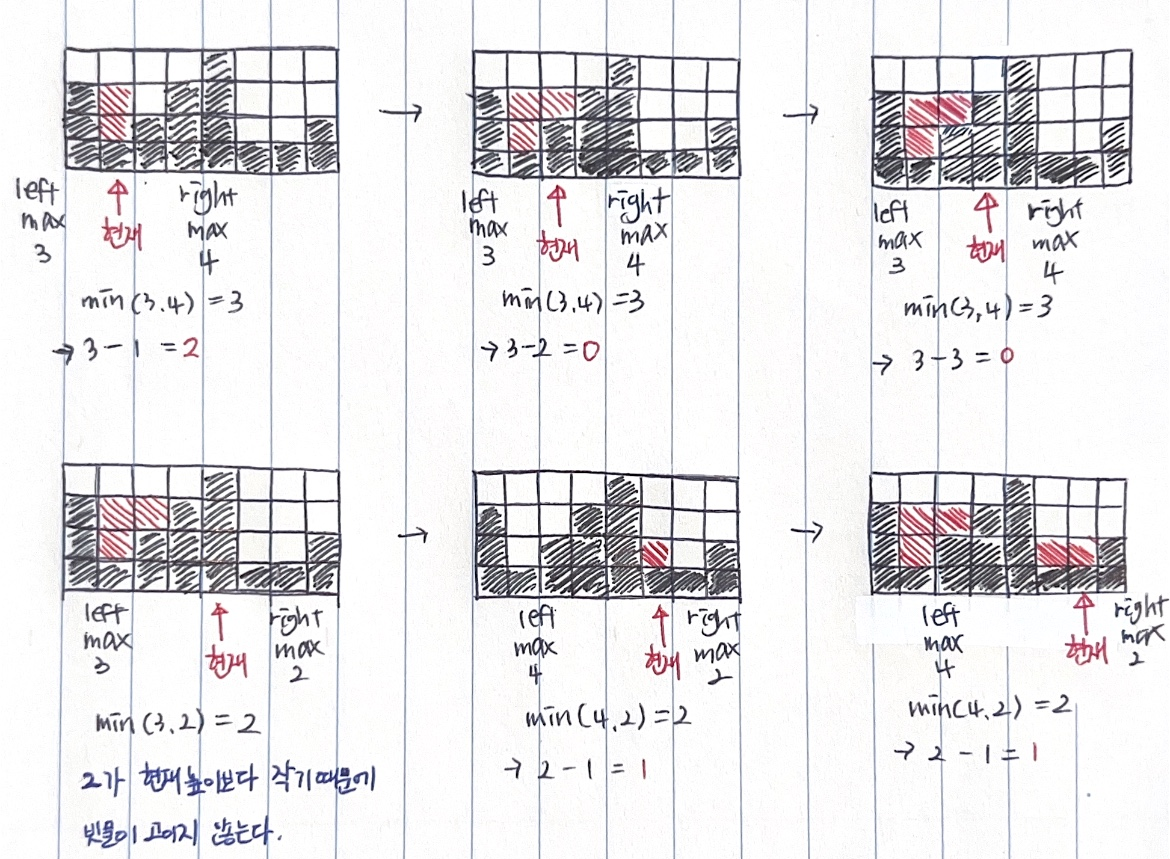 left
max
3
현재
right
max
4
min(3.4) = 3
→ 3 - 1 = 2
left
max
3
현재
right
max
4
min(3.4) = 3
→ 3 - 2 = 0
left
max
3
현재
right
max
4
min(3,4) = 3
→ 3 - 3 = 0
left
max
3
현재
right
max
2
min(3.2) = 2
2가 현재 높이보다 작기 때문에
빗물이 고이지 않는다.
left
max
4
현재
right
max
2
min(4.2) = 2
→ 2 - 1 = 1
left
max
4
현재
right
max
2
min(4.2) = 2
→ 2 - 1 = 1